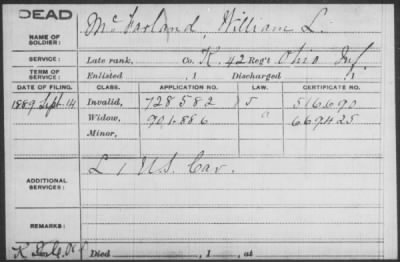 DEAD
NAME OF SOLDIER: McFarland, William L.
SERVICE: Late rank, Co. K. 42 Reg't Ohio Inf.
TERM OF SERVICE: Enlisted , 1 Discharged , 1
DATE OF FILING. CLASS. APPLICATION NO. LAW. CERTIFICATE NO.
1889 Sept. 14 Invalid, 728582 516690
Widow, 669425
Minor,
ADDITIONAL SERVICES: L 1 U.S. Cav.
REMARKS:
Died , 1 , at